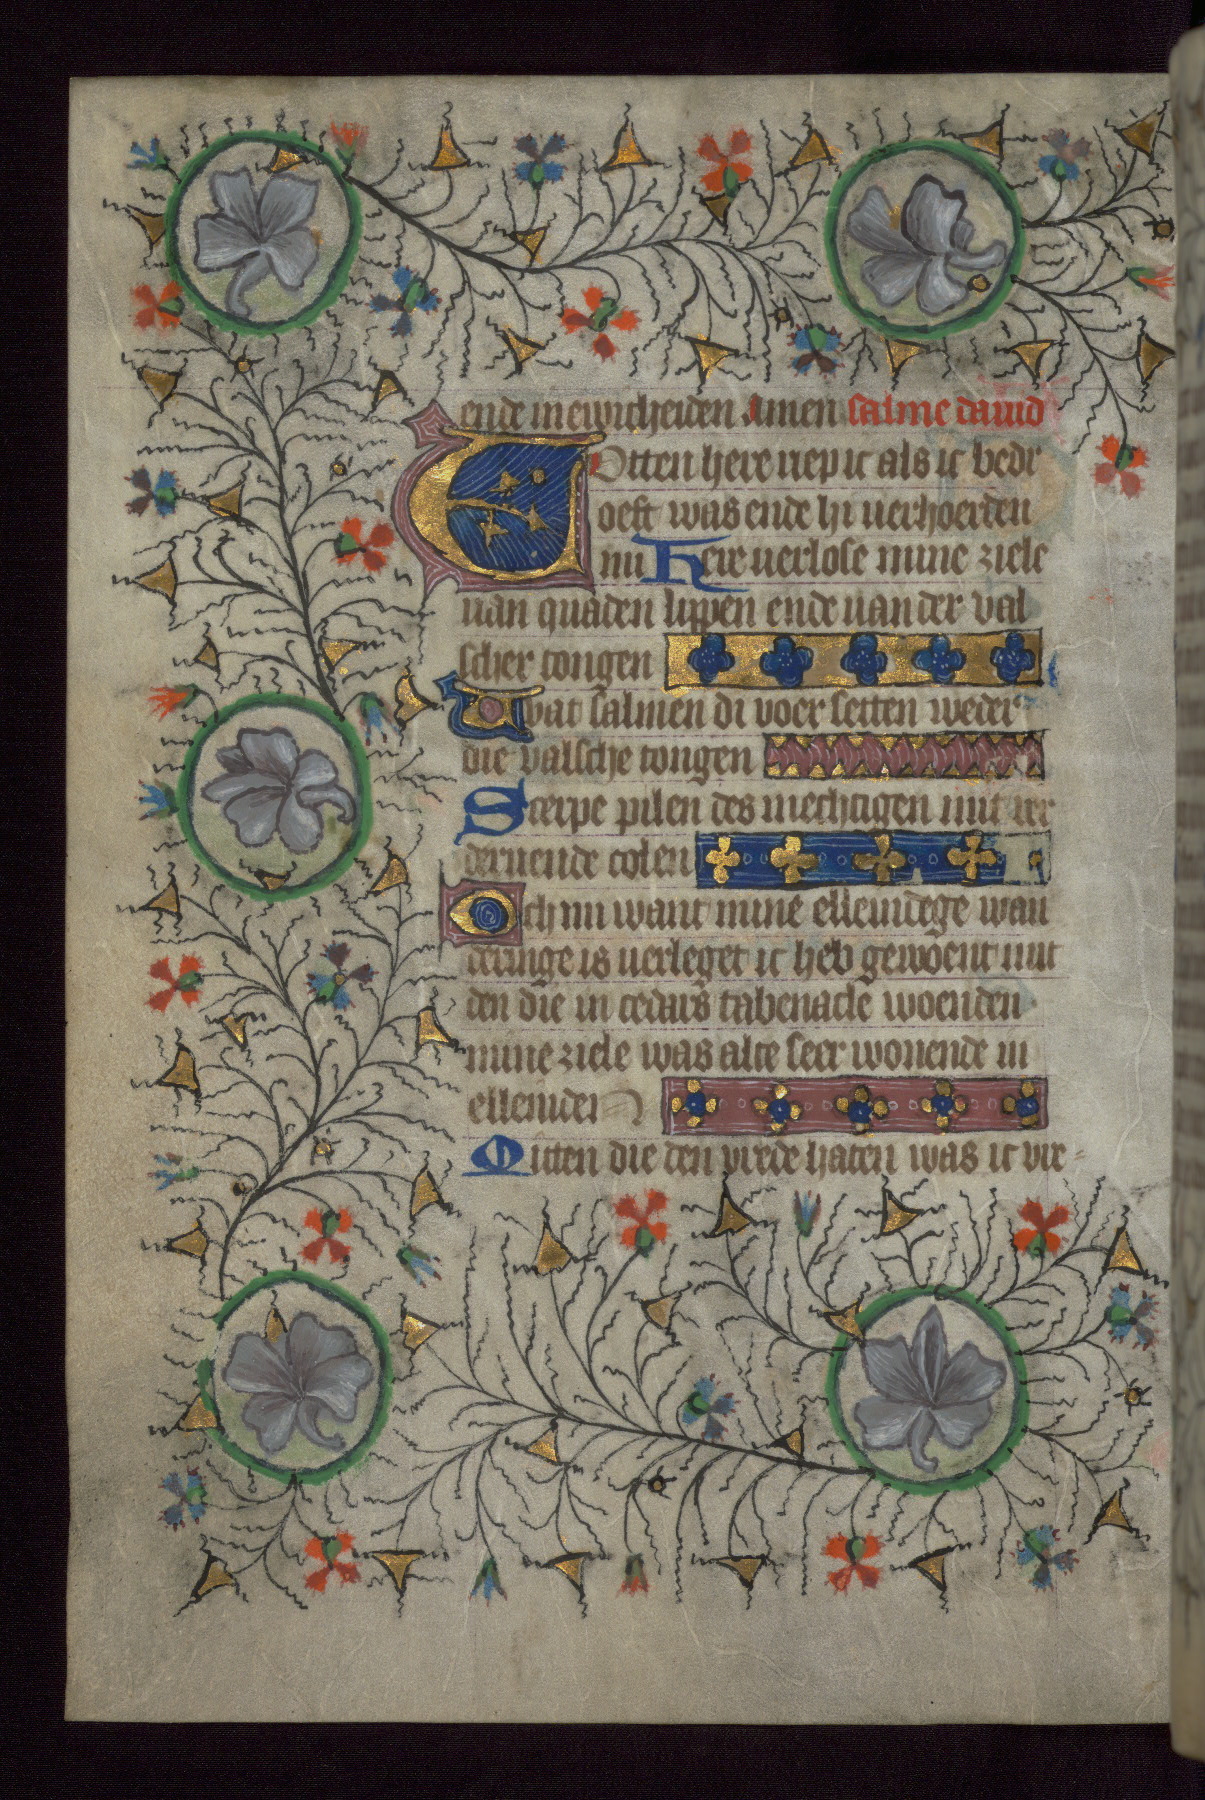 ende in ewicheiden Amen salme dauid
Totten here riep ic als ic bedr
oeft was ende hi uerhoerden
mi Here uerlose mine ziele
uan quaden lippen ende uander val
scher tongen
Wat salmen di voer setten weder
die valsche tongen
Scerpe pilen des mechtigen mit ver
deruende colen
Och mi want mine ellendege wan
deringe is uerleget ic heb gewoent mit
den die in cedars tabenacle woenden
mine ziele was alte seer wonende in
ellender
Mitten die den vrede haten was ic vre